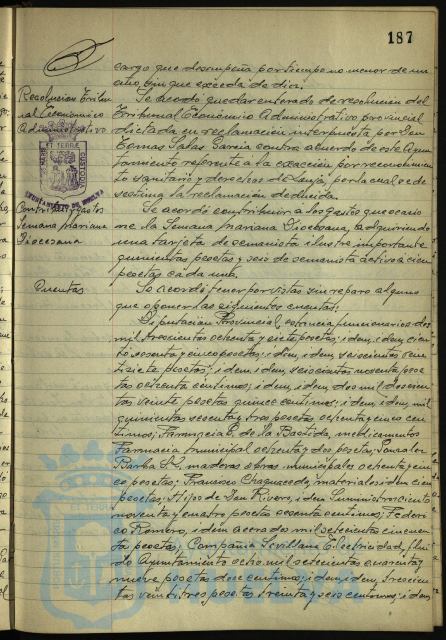 187
cargo que desempeña por tiempo no menor de un
año, sin que exceda de diez.
Resolucion Tribu-
nal Económico
Administrativo
Se acordó quedar enterado de resolución del
Tribunal Económico Administrativo provincial
dictada en reclamación interpuesta por Don
Tomas Salas Garcia contra acuerdo de este Ayun-
tamiento referente a la exacción por reconocimien-
to sanitario y derechos de Lonja, por la cual se de-
sestima la reclamación deducida.
Contribuir gastos
Semana Mariana
Diocesana
Se acordó contribuir a los gastos que ocasio-
ne la Semana Mariana Diocesana, adquiriendo
una tarjeta de semanista ilustre importante
quinientas pesetas y seis de semanista activo a cien
pesetas cada una.
Cuentas
Se acordó tener por vistas sin reparo alguno
que oponer las siguientes cuentas:
Diputación Provincial, estancia funcionarios dos
mil trescientas ochenta y siete pesetas; idem, idem cien-
to sesenta y cinco pesetas; idem, idem seiscientas ven-
tisiete pesetas; idem, idem seiscientas noventa pese-
tas ochenta centimos; idem, idem dos mil doscien-
tas veinte pesetas quince centimos; idem, idem, mil
quinientas sesenta y tres pesetas ochenta y cinco cen-
timos; Farmacia C. de la Bastida, medicamentos
Farmacia municipal ochenta y dos pesetas; Gonzalez
Barba S.L. maderas obras municipales ochenta y cin-
co pesetas; Francisco materiales idem cien
pesetas; Hijos de Don Rivero, idem Suministro ciento
noventa y cuatro pesetas sesenta centimos; Federi-
co Romero, idem acerado mil setecientas cincuen-
ta pesetas; Compañia Sevillana Electricidad, flui-
do Ayuntamiento ocho mil setecientas cuarenta y
nueve pesetas doce centimos; idem idem, trescien-
tas veintitres pesetas treinta y seis centimos; idem